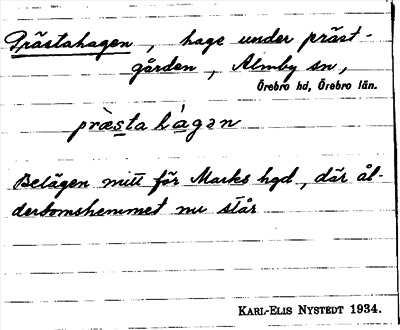 Prästahagen, hage under präst-
gården, Almby sn,
Örebro hd, Örebro län.
præ̀sta hágan
Belägen mitt för Marks hgd, där ål-
derdomshemmet nu står
KARL-ELIS NYSTEDT 1934.